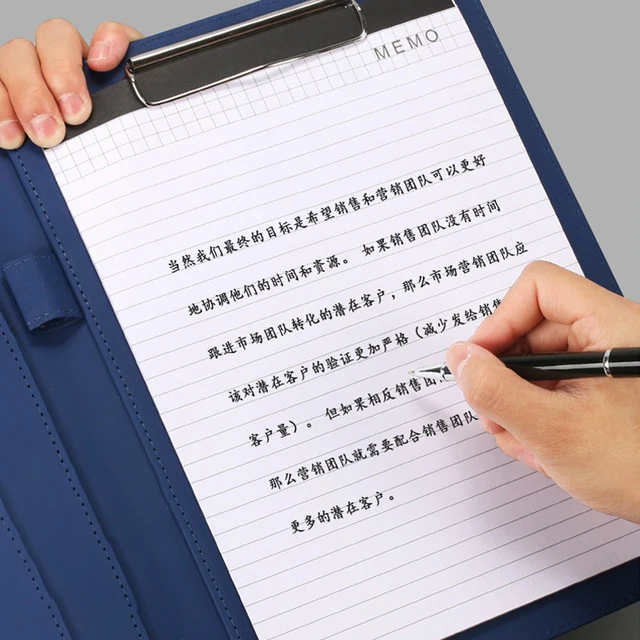 MEMO
当然我们最终的目标是希望销售和营销团队可以更好
地协调他们的时间和资源。 如果销售团队没有时间
跟进市场团队转化的潜在客户，那么市场营销团队应
该对潜在客户的验证更加严格（减少发给销售
客户量）。 但如果相反销售团
那么营销团队就需要配合销售团队
更多的潜在客户。